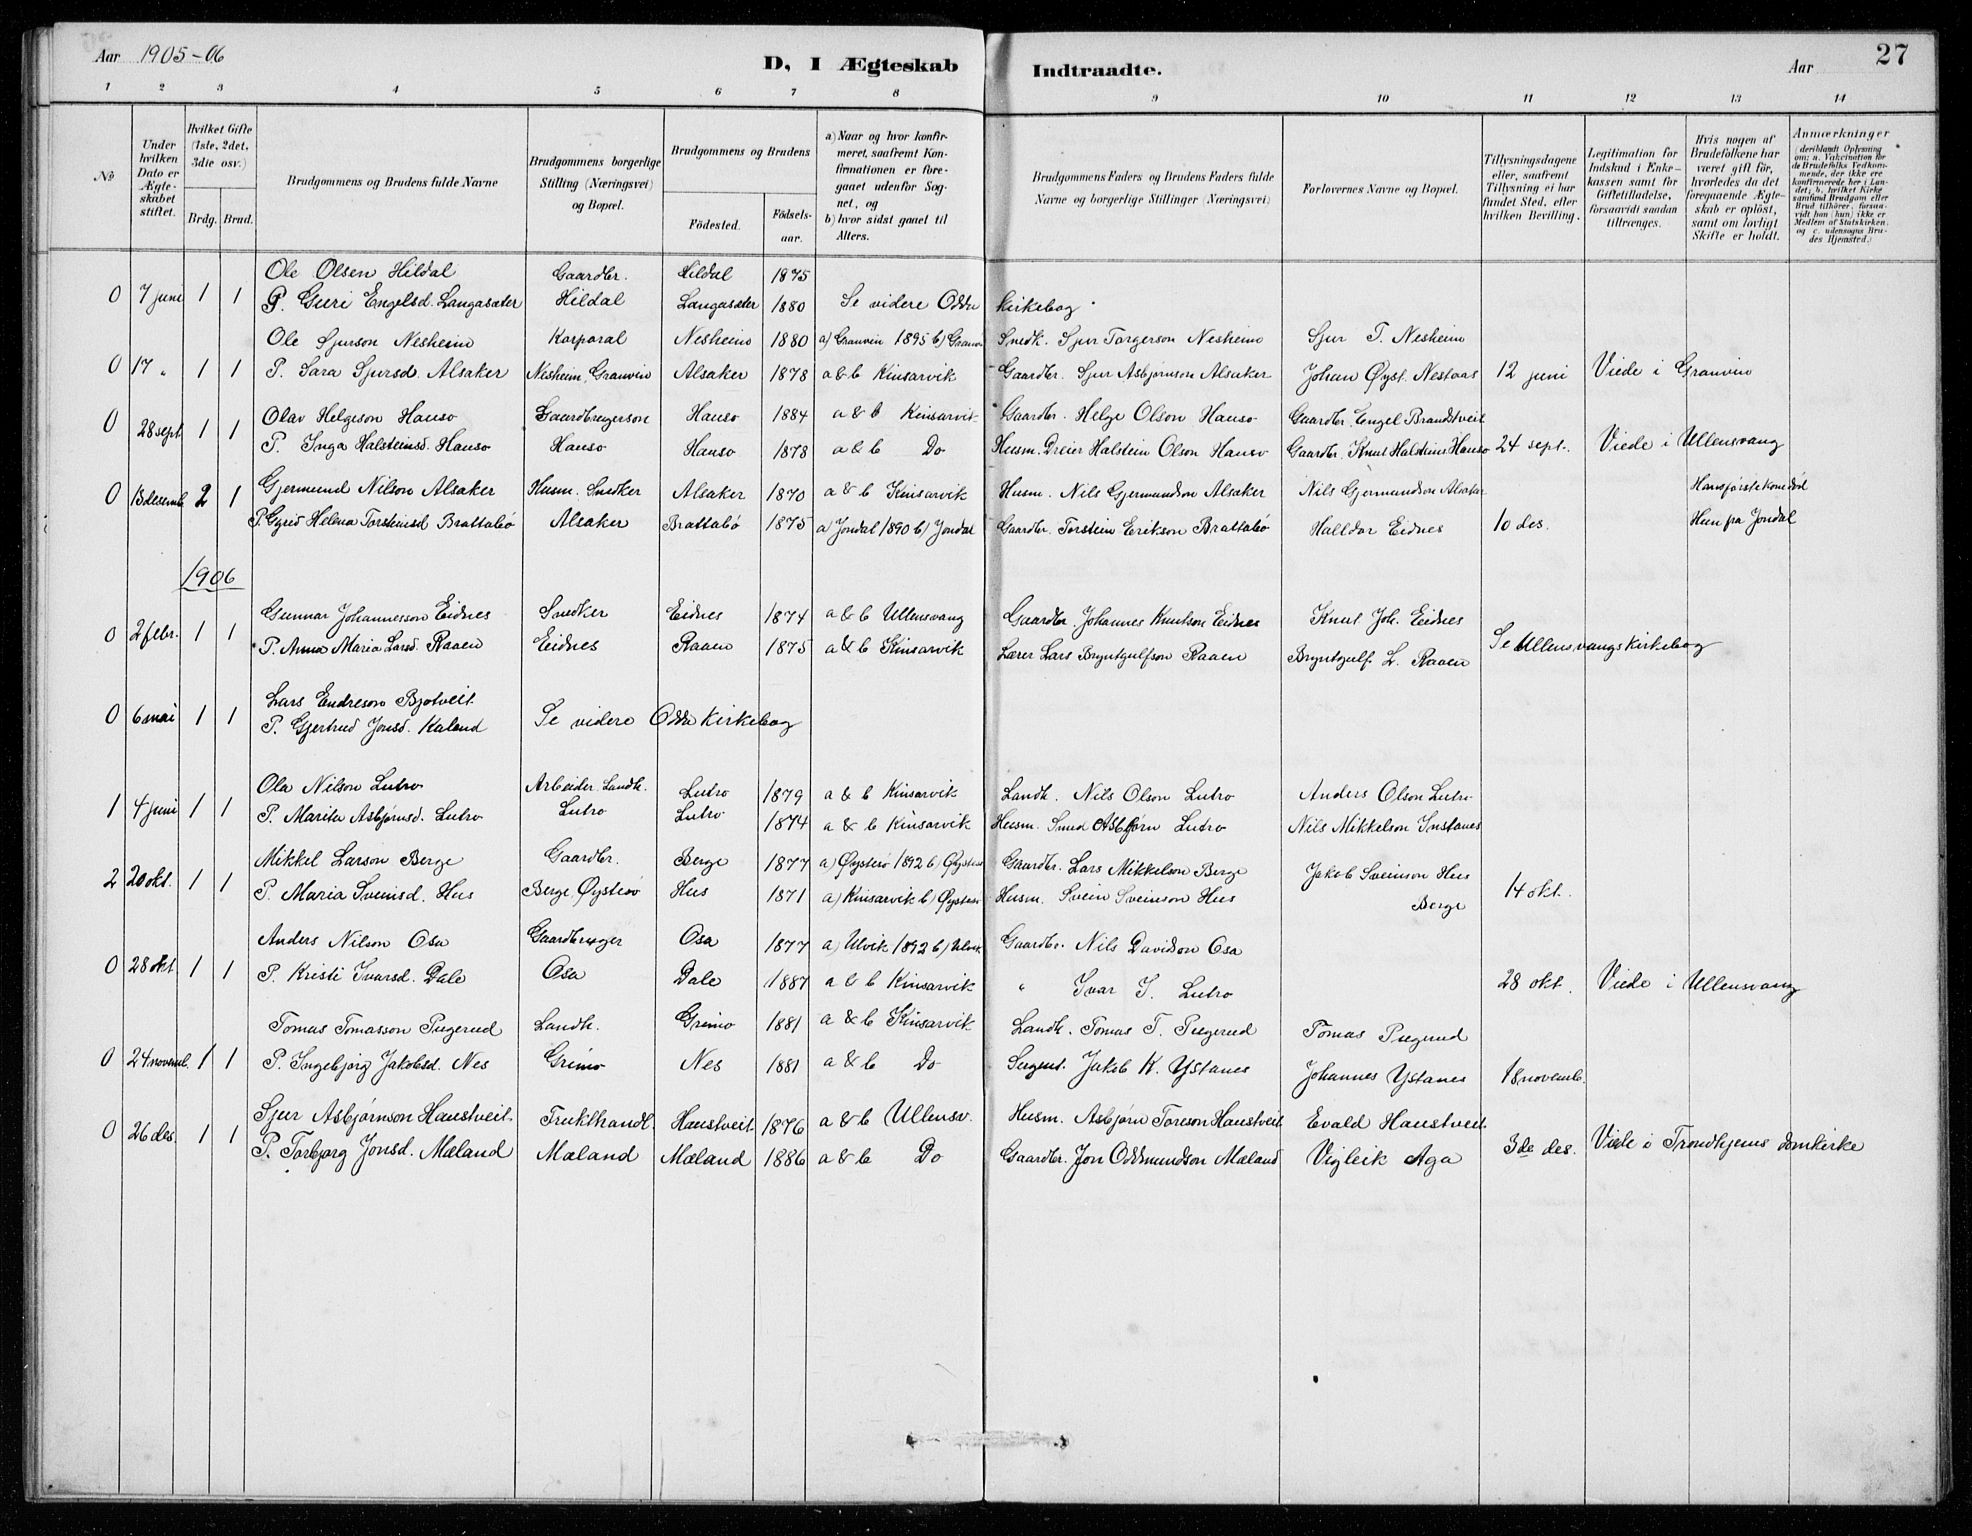 Aar 1905-06
D, I Ægteskab Indtraadte.
Aar
27
1 2 3 4 5 6 7 8 9 10 11 12 13 14
No
Under hvilken Dato er Ægteskabet stiftet.
Hvilket Gifte (1ste, 2det, 3die osv.)
Brdg. Brud.
Brudgommens og Brudens fulde Navne
Brudgommens borgerlige Stilling (Næringsvei) og Bopæl.
Brudgommens og Brudens
Födested. Födselsaar.
a) Naar og hvor konfirmeret, saafremt Konfirmationen er foregaaet udenfor Sognet, og
b) hvor sidst gaaet til Alters.
Brudgommens Faders og Brudens Faders fulde Navne og borgerlige Stillinger (Næringsvei)
Forlovernes Navne og Bopæl.
Tillysningsdagene eller, saafremt Tillysning ei har fundet Sted, efter hvilken Bevilling.
Legitimation for Indskud i Enkekassen samt for Giftetilladelse, forsaavidt saadan tiltrænges.
Hvis nogen af Brudefolkene har været gift før, hvorledes da det foregaaende Ægteskab er oplöst, samt om lovligt Skifte er holdt.
Anmærkninger (deriblandt Oplysning om: a. Vakcination for de Brudefolks Vedkommende, der ikke ere konfirmerede her i Landet; b. hvilket Kirkesamfund Brudgom eller Brud tilhører, forsaavidt han (hun) ikke er Medlem af Statskirken, og c. udensogns Brudes Hjemsted.)
Ole Olsen Hildal Gaardbr. Hildal 1875
0 7 juni 1 1 P. Guri Engelsd. Langasæter Hildal Langasæter 1880 Se videre Odda kirkebog.
Ole Sjurson Nesheim Korporal Nesheim 1880 a) Granvin 1895 b) Granvin Snedk. Sjur Torgerson Nesheim Sjur T. Nesheim
0 17 " 1 1 P. Sara Sjursd. Alsaker Nesheim, Granvin Alsaker 1878 a & b Kinsarvik Gaardbr. Sjur Asbjørnson Alsaker Johan Øyst. Nestaas 12 juni Viede i Granvin
Olav Helgeson Hauso Gaardbrugerson Hauso 1884 a & b Kinsarvik Gaardbr. Helge Olson Hauso Gaardbr. Engel Brandstveit
0 28 sept 1 1 P. Inga Halsteinsd. Hauso Hauso Hauso 1878 a & b Do Husm. Dreier Halstein Olson Hauso Gaardbr. Knut Halsteins. Hauso 24 sept. Viede i Ullensvang
Gjermund Nilson Alsaker Husm. Snedker Alsaker 1870 a & b Kinsarvik Husm. Nils Gjermundson Alsaker Nils Gjermundson Alsaker Hans første kone død
0 13 desemb 2 1 P. Gyrid Helena Torsteinsd Brattabø Alsaker Brattabø 1875 a) Jondal 1890 b) Jondal Gaardbr. Torstein Erikson Brattabø Halldor Eidnes 10 des. Hun fra Jondal
1906
Gunnar Johannesson Eidnes Snedker Eidnes 1874 a & b Ullensvang Gaardbr. Johannes Knutson Eidnes Knut Joh. Eidnes
0 2 febr. 1 1 P. Anna Maria Larsd. Raaen Eidnes Raaen 1875 a & b Kinsarvik Lærer Lars Bryntgulfson Raaen Bryntgulf L. Raaen Se Ullensvangs kirkebog
Lars Endreson Bjotveit
0 6 mai 1 1 P. Gjertrud Jonsd. Kaland Se videre Odda Kirkebog
Ola Nilson Lutro Arbeider. Landh. Lutro 1879 a & b Kinsarvik Landh. Nils Olson Lutro Anders Olson Lutro
1 4 juni 1 1 P. Marita Asbjørnsd. Lutro Lutro Lutro 1874 a & b Kinsarvik Husm. Smed Asbjørn Lutro Nils Mikkelson Instanes
Mikkel Larson Berge Gaardbr. Berge 1877 a) Øystesø 1892 b) Øystesø Gaardbr. Lars Mikkelson Berge Jakob Sveinson Hus
2 20 okt. 1 1 P. Maria Sveinsd. Hus Berge, Øystesø Hus 1871 a) Kinsarvik b) Øystesø Husm. Svein Sveinson Hus Berge 14 okt.
Anders Nilson Osa Gaardbruger Osa 1877 a) Ulvik 1892 b) Ulvik Gaardbr. Nils Davidson Osa
0 28 okt 1 1 P. Kristi Ivarsd. Dale Osa Dale 1887 a & b Kinsarvik " Ivar I. Lutro 28 okt. Viede i Ullensvang
Tomas Tomasson Pugerud Landh. Grimo 1881 a & b Kinsarvik Landh. Tomas T. Pugerud Tomas Pugerud
0 24 novemb. 1 1 P. Ingebjørg Jakobsd. Nes Grimo Nes 1881 a & b Do Sergent. Jakob K. Ystanes Johannes Ystanes 18 novemb.
Sjur Asbjørnson Haustveit Frukthandl. Haustveit 1876 a & b Ullensv. Husm. Asbjørn Toreson Haustveit Evald Haustveit
0 26 des. 1 1 P. Torbjørg Jonsd. Mæland Mæland Mæland 1886 a & b Do Gaardbr. Jon Oddmundson Mæland Vigleik Aga 3de des. Viede i Trondhjems domkirke